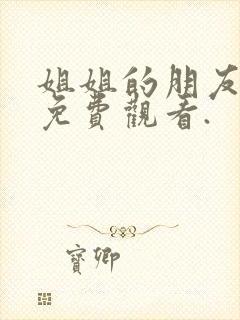 姐姐的朋友
免費觀看.
寶卿